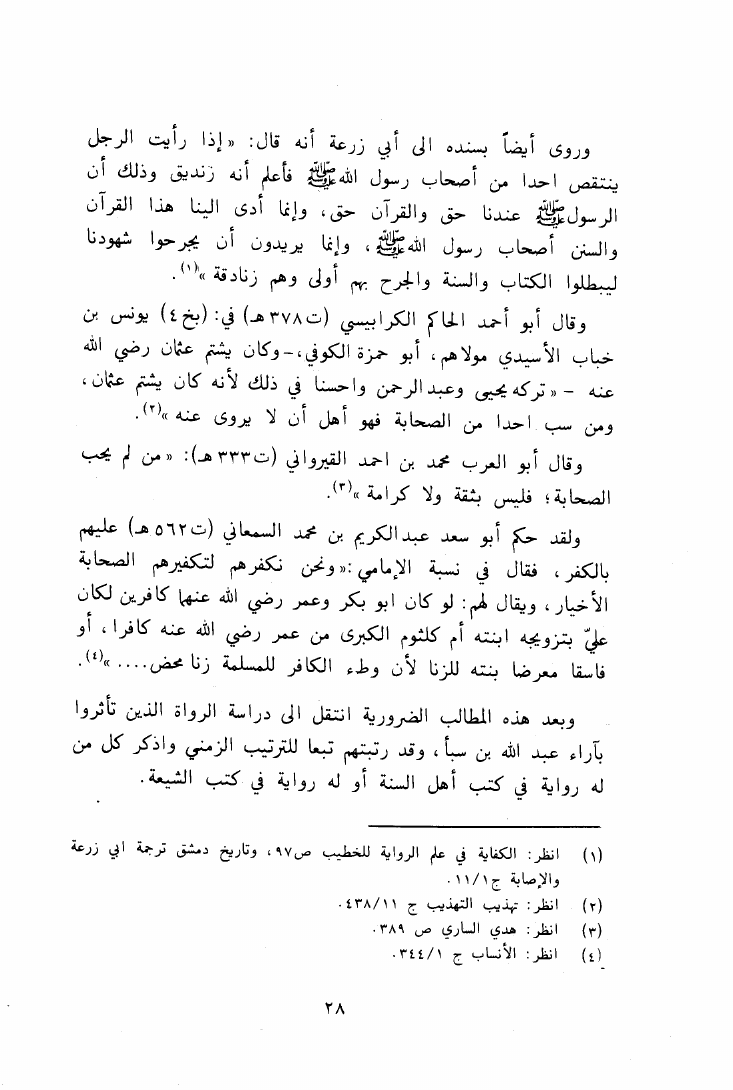 وروى أيضاً بسنده الى أبي زرعة أنه قال: «إذا رأيت الرجل
ينتقص احدا من أصحاب رسول الله ﷺ فأعلم أنه زنديق وذلك أن
الرسول ﷺ عندنا حق والقرآن حق، وإنما أدى الينا هذا القرآن
والسنن أصحاب رسول الله ﷺ، وإنما يريدون أن يجرحوا شهودنا
ليبطلوا الكتاب والسنة والجرح بهم أولى وهم زنادقة»(١).
وقال أبو أحمد الحاكم الكرابيسي (ت٣٧٨هـ) في: (بخ٤) يونس بن
خباب الأسيدي مولاهم، أبو حمزة الكوفي،-وكان يشتم عثمان رضي الله
عنه - «تركه يحيى وعبد الرحمن واحسنا في ذلك لأنه كان يشتم عثمان،
ومن سب احدا من الصحابة فهو أهل أن لا يروى عنه»(٢).
وقال أبو العرب محمد بن احمد القيرواني (ت٣٣٣هـ): «من لم يحب
الصحابة؛ فليس بثقة ولا كرامة»(٣).
ولقد حكم أبو سعد عبدالكريم بن محمد السمعاني (ت٥٦٢هـ) عليهم
بالكفر، فقال في نسبة الإمامي:«ونحن نكفرهم لتكفيرهم الصحابة
الأخيار، ويقال لهم: لو كان ابو بكر وعمر رضي الله عنهما كافرين لكان
عليّ بتزويجه ابنته أم كلثوم الكبرى من عمر رضي الله عنه كافرا، أو
فاسقا معرضا بنته للزنا لأن وطء الكافر للمسلمة زنا محض....»(٤).
وبعد هذه المطالب الضرورية انتقل الى دراسة الرواة الذين تأثروا
بآراء عبد الله بن سبأ، وقد رتبتهم تبعا للترتيب الزمني واذكر كل من
له رواية في كتب أهل السنة أو له رواية في كتب الشيعة.
(١) انظر: الكفاية في علم الرواية للخطيب ص٩٧، وتاريخ دمشق ترجمة ابي زرعة
والإصابة ج١/١١.
(٢) انظر: تهذيب التهذيب ج ٤٣٨/١١.
(٣) انظر: هدي الساري ص ٣٨٩.
(٤) انظر: الأنساب ج ٣٤٤/١.
٢٨